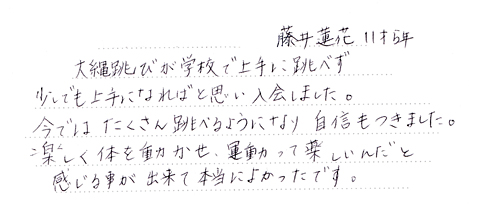 藤井蓮花 11才5年
大縄跳びが学校で上手に跳べず
少しでも上手になればと思い入会しました。
今では たくさん跳べるようになり 自信もつきました。
楽しく体を動かせ、運動って楽しいんだと
感じる事が出来て本当によかったです。